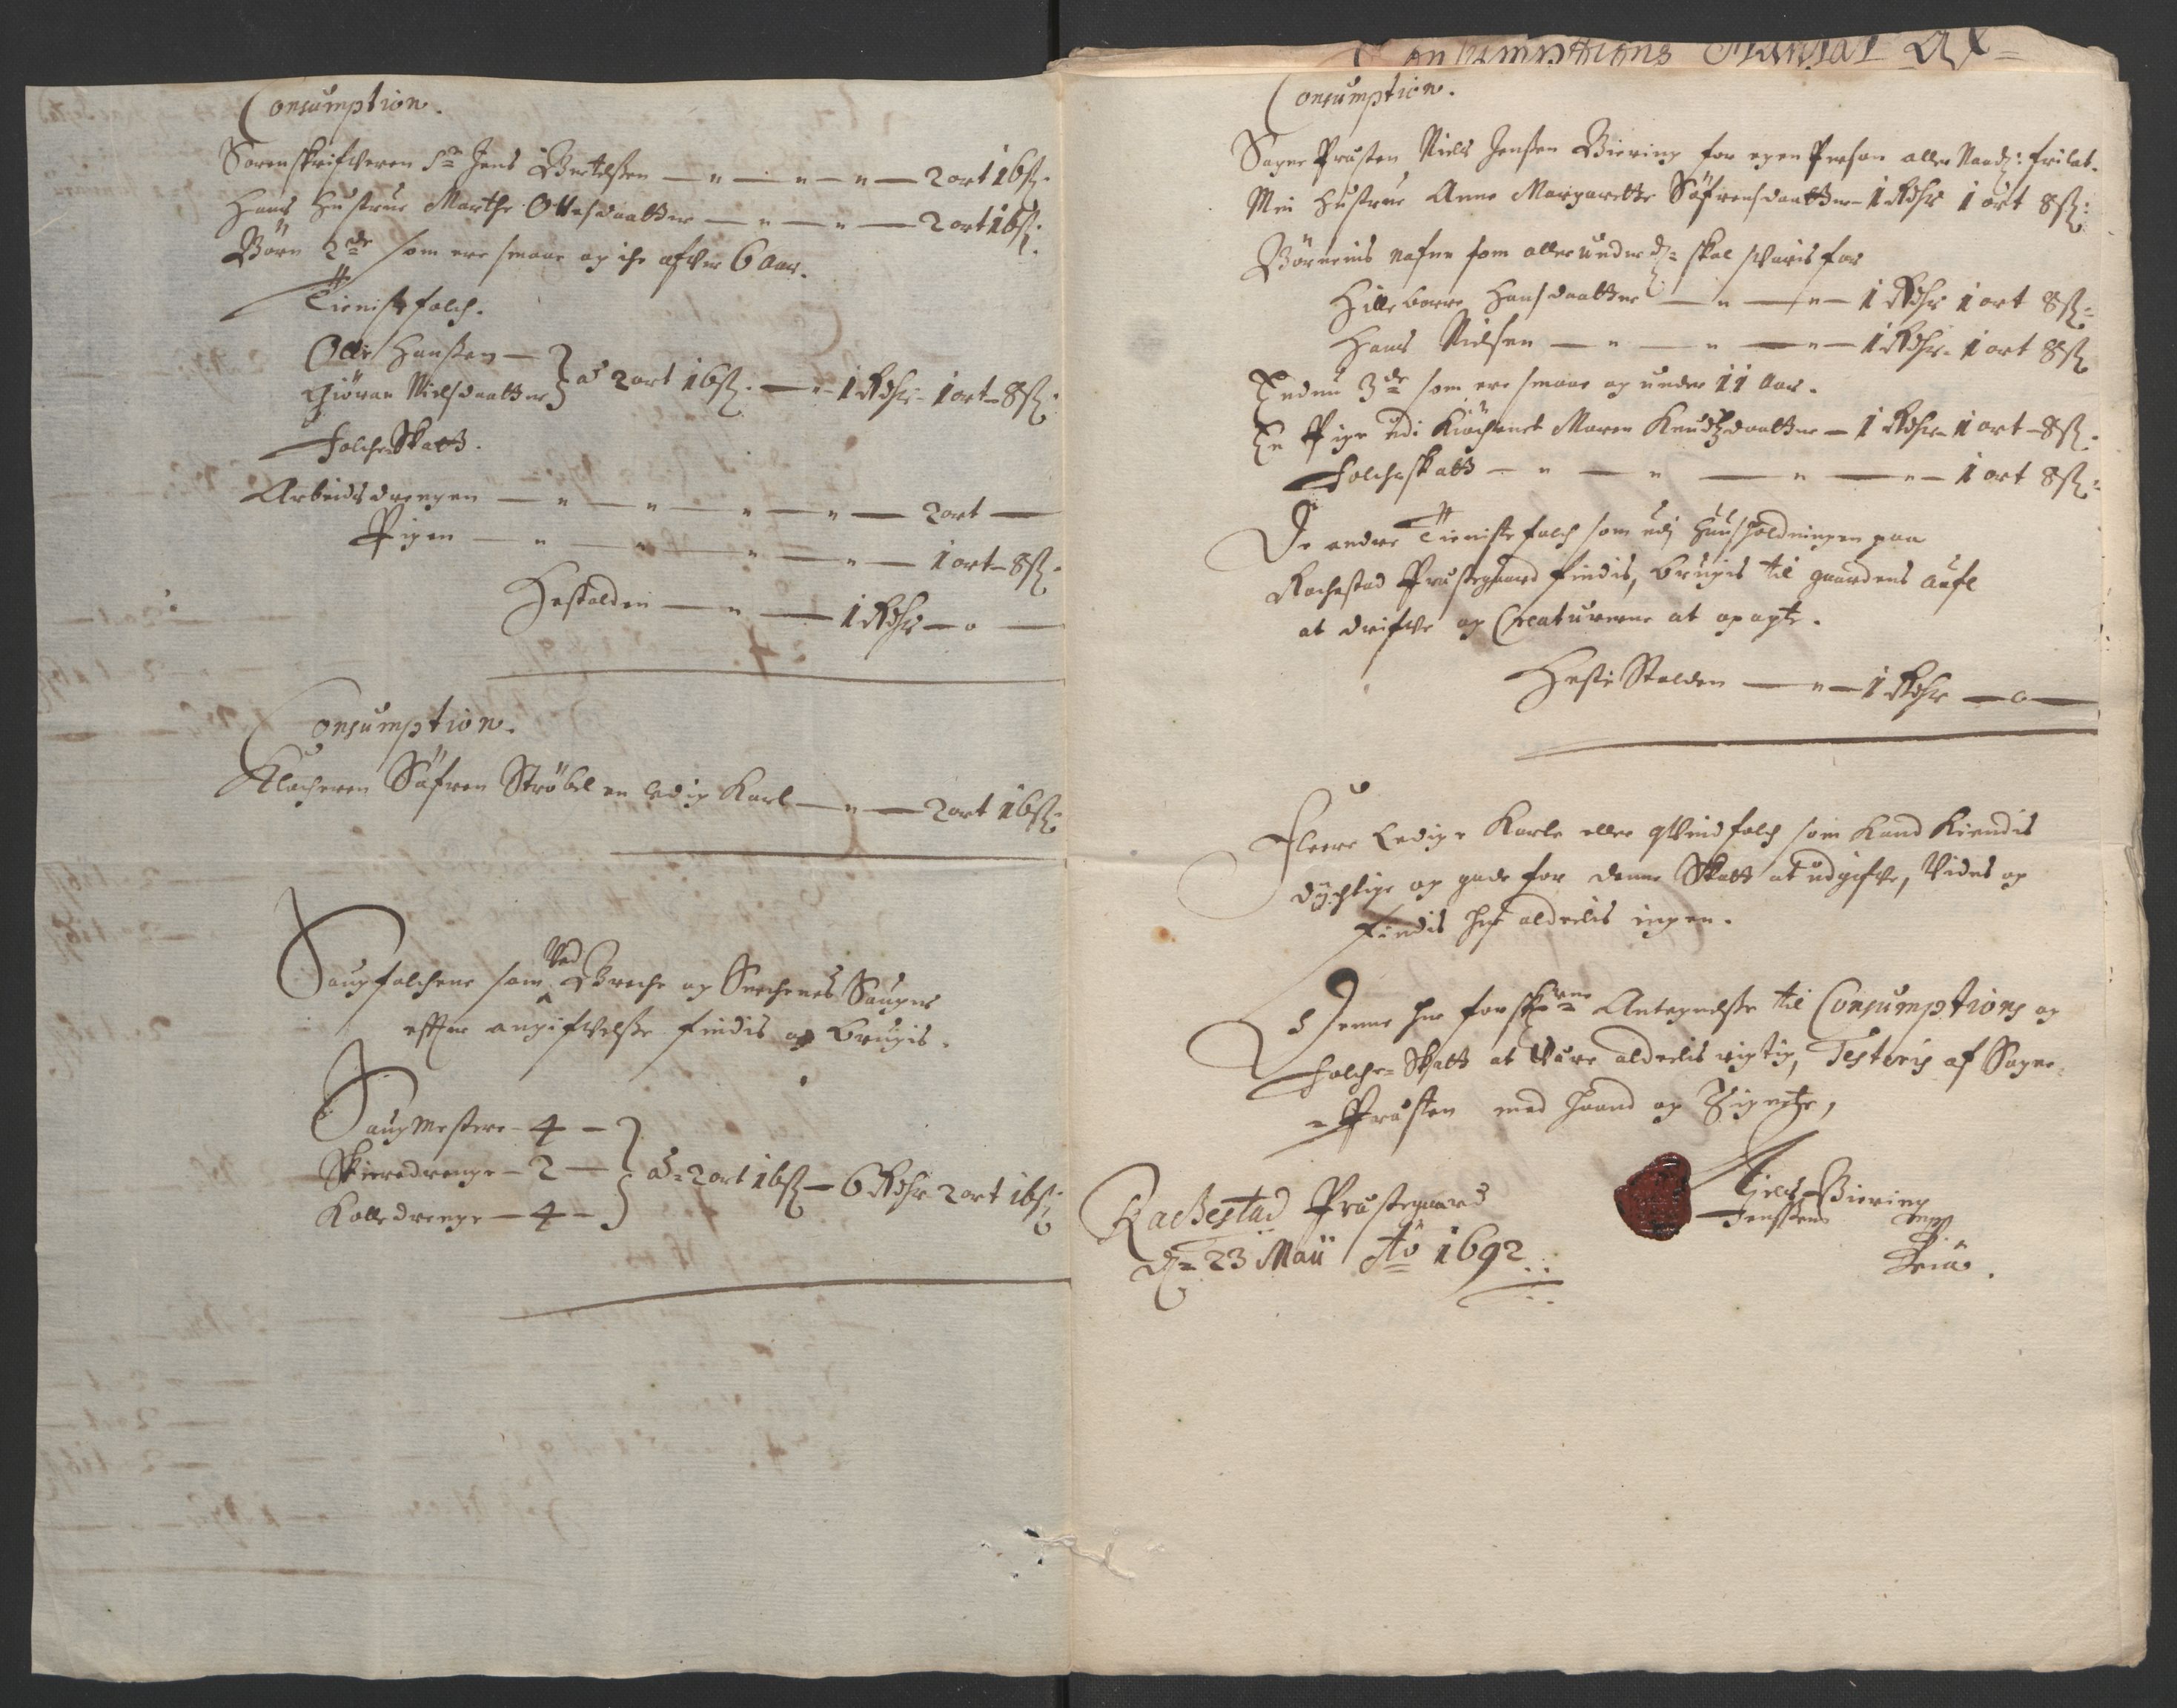 Consumption.
Sorenskrifveren Sr Jens Bertelssen — " — " — " — 2 ort 16 ß.
Hans Hustrue Marthe Ottesdaatter — " — " — 2 ort 16 ß:
Börn 2de som ere smaae og iche ofver 6 Aar.
Tienistefolch.
Olle Hanssen —
Giöran Nielsdaatter } à 2 ort 16 ß. — " 1 Rdhr - 1 ort - 8 ß:
Folche Skatt.
Arbeidsdrengen — " — " — " — " — 2 ort —
Pigen — " — " — " — " — 1 ort - 8 ß.
Hestolden — " — 1 Rdhr — o —
Consumption.
Klocheren Söfren Ströbel en ledig Karl — " — 2 ort 16 ß:
Saugfolchene som Ved Breche og Suchenes Sauger
efter angifvelsse findis og brugis.
Saugmestere - 4 -
Skieredrenge - 2 — } à 2 ort 16 ß — 6 Rdhr 2 ort 16 ß:
Kolledrenge — 4 —
Consumptions Mandtal
Consumption.
Sogne Præsten Niels Jenssen Biering for egen Person aller Naadt: frilat.
Min Hustrue Anne Margarette Söfrensdaatter - 1 Rdhr 1 ort 8 ß:
Börnenis nafne som allerunderd: skal svaris for
Hilleborre Hansdaatter — " — " — 1 Rdhr 1 ort 8 ß:
Hans Nielsen — " — " — " — 1 Rdhr - 1 ort 8 ß
Endnu 3de som ere smaae og under 11 Aar.
En Pige udi Kiöchenet Maren Knudtzdaatter — 1 Rdhr - 1 ort - 8 ß.
Folcheskatt — " — " — " — " — 1 ort 8 ß:
De andre Tienistefolch som udj Huusholdningen paa
Rachestad Præstegaard findis, brugis til gaardens aufl
at drifve og Creaturerne at opagte.
Heste Stalden — " — 1 Rdhr — o —
Fleere Ledige Karle eller qvindfolch som kand kiendis
dychtige og gode for denne Skatt at udgifve, Vides og
findis her aldeelis ingen.
Denne her forskrne Antegnelsse til Consumptions og
Folche-Skatt at Være aldeelis rigtig, Testeris af Sogne-
Præsten med haand og Signete,
Rachestad Præstegaard
d: 23 Maii Ao 1692
Niels Biering
Jenssen mp